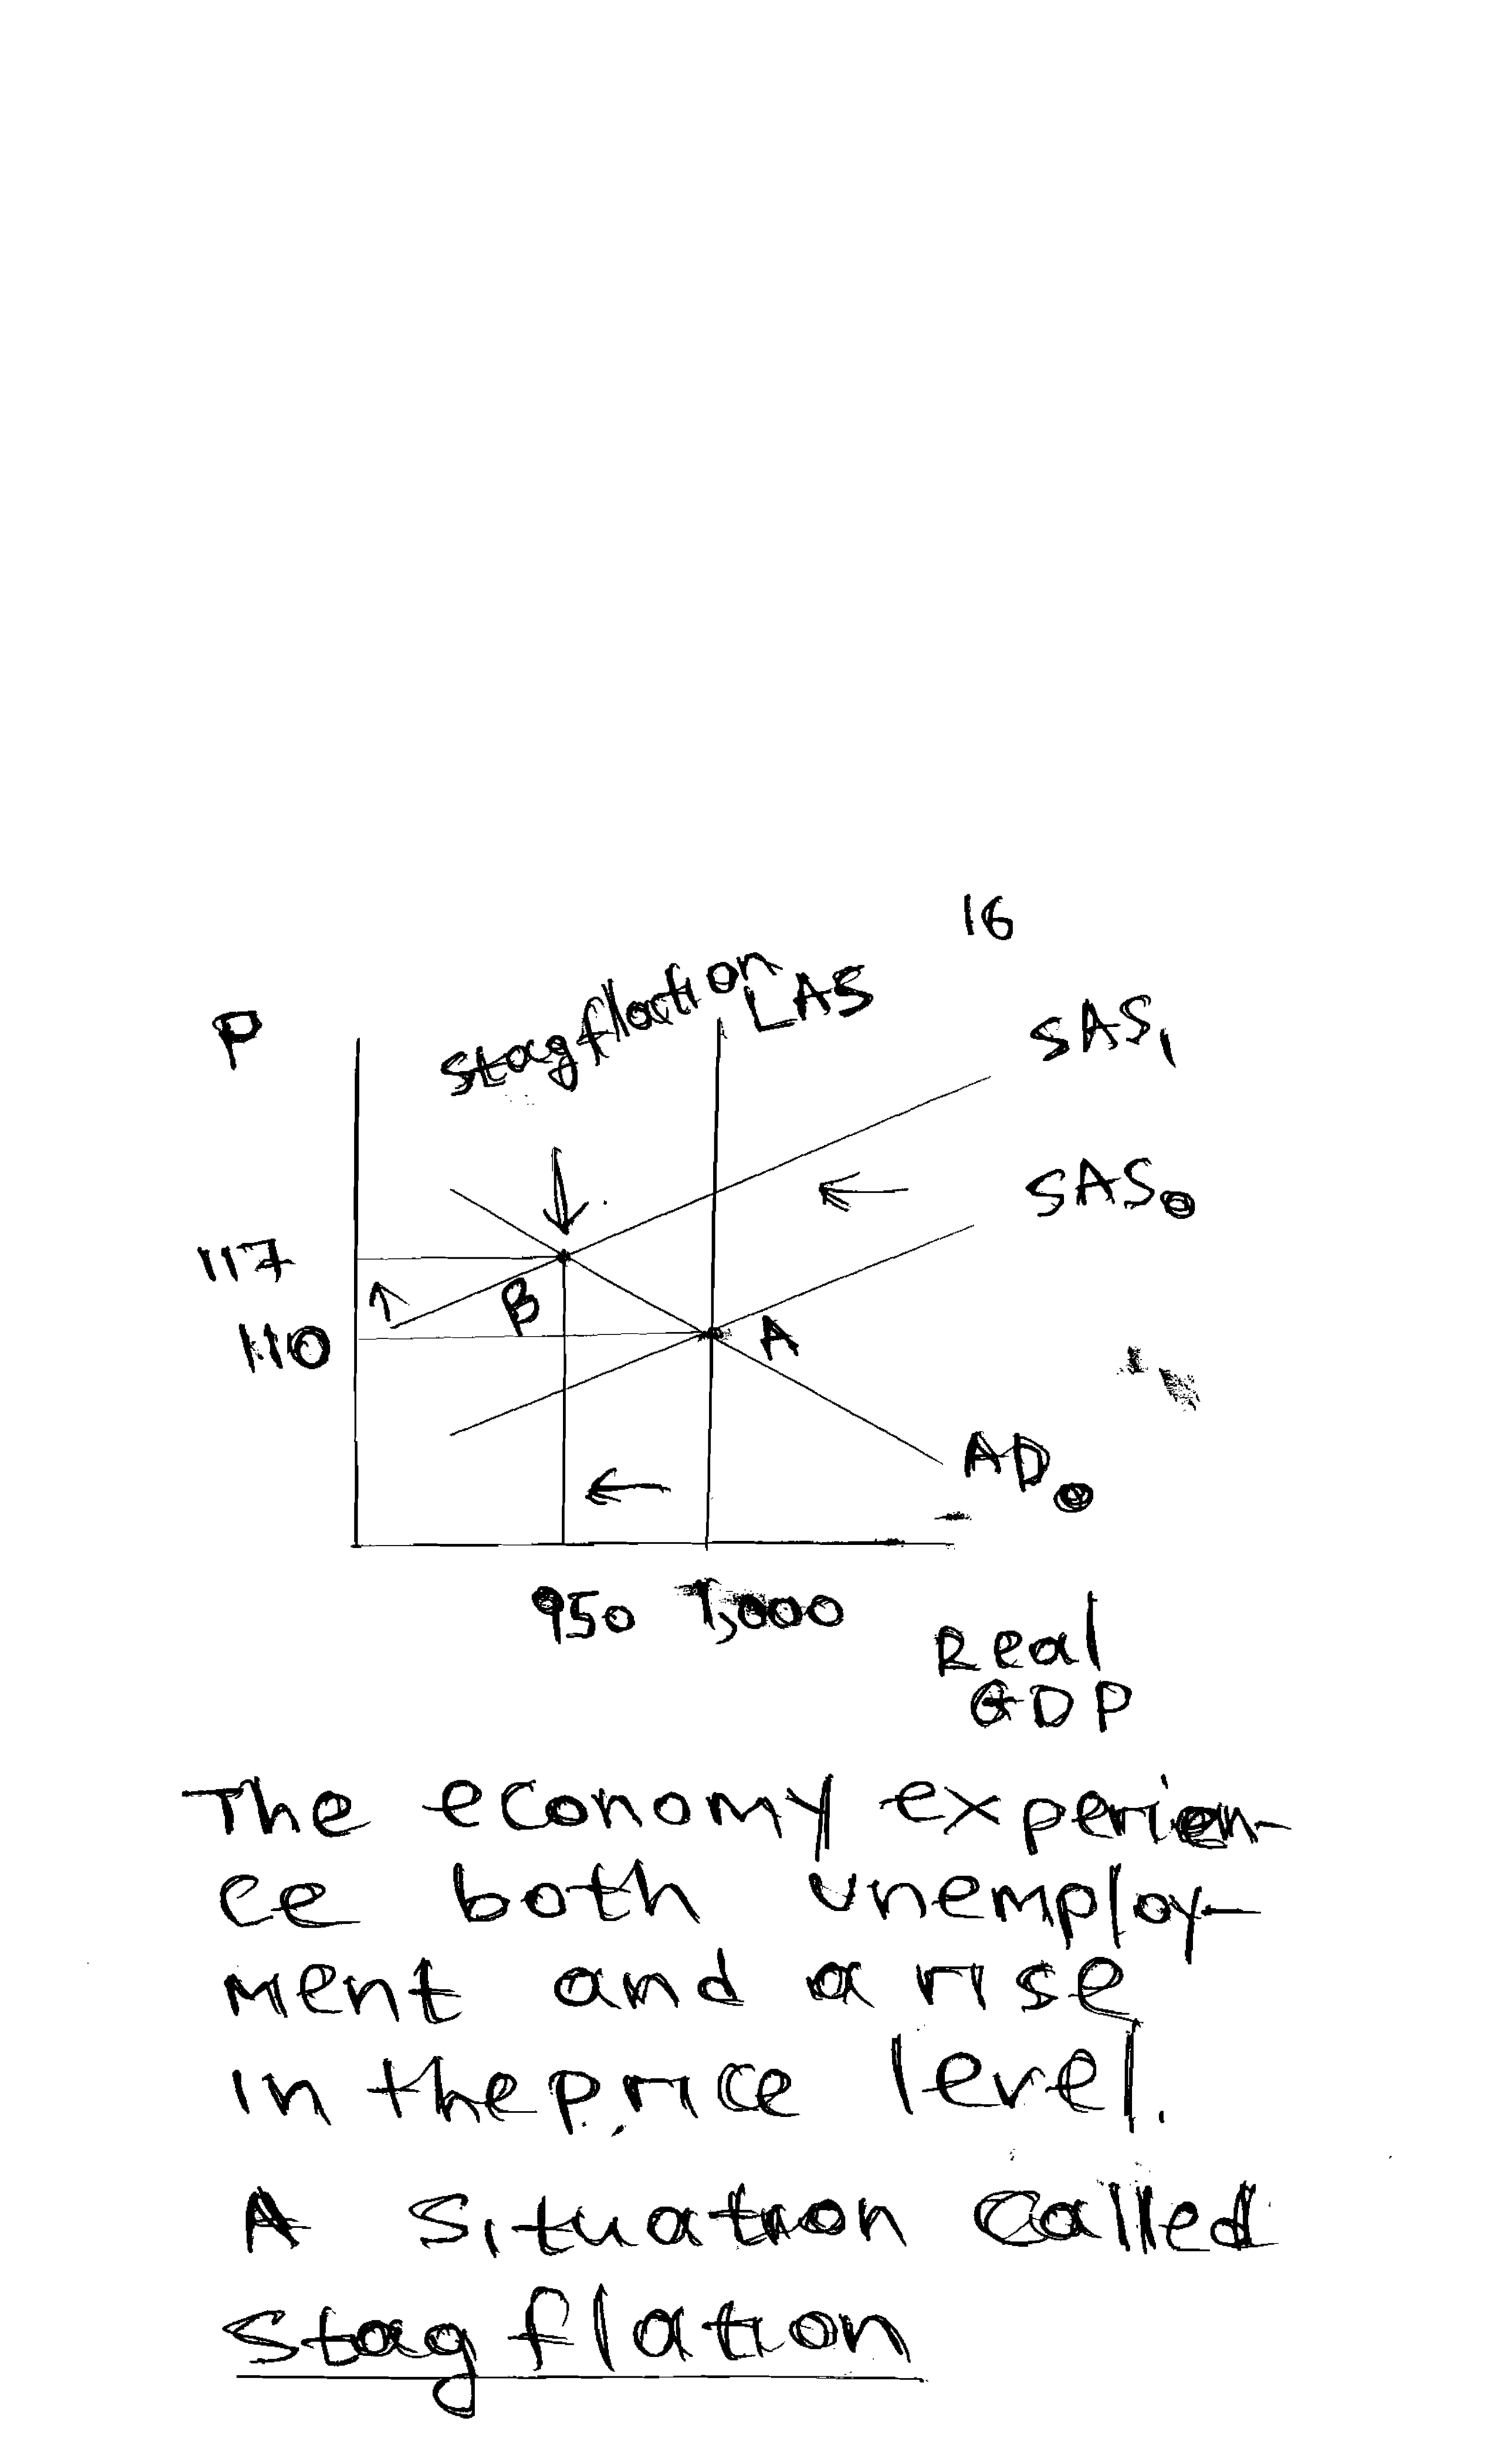 16
stagflation
LAS
P
SAS1
SAS0
117
B
110
A
AD0
950 1,000
Real
GDP
The economy experien-
ce both unemploy-
ment and a rise
in the price level.
A situation called
stagflation